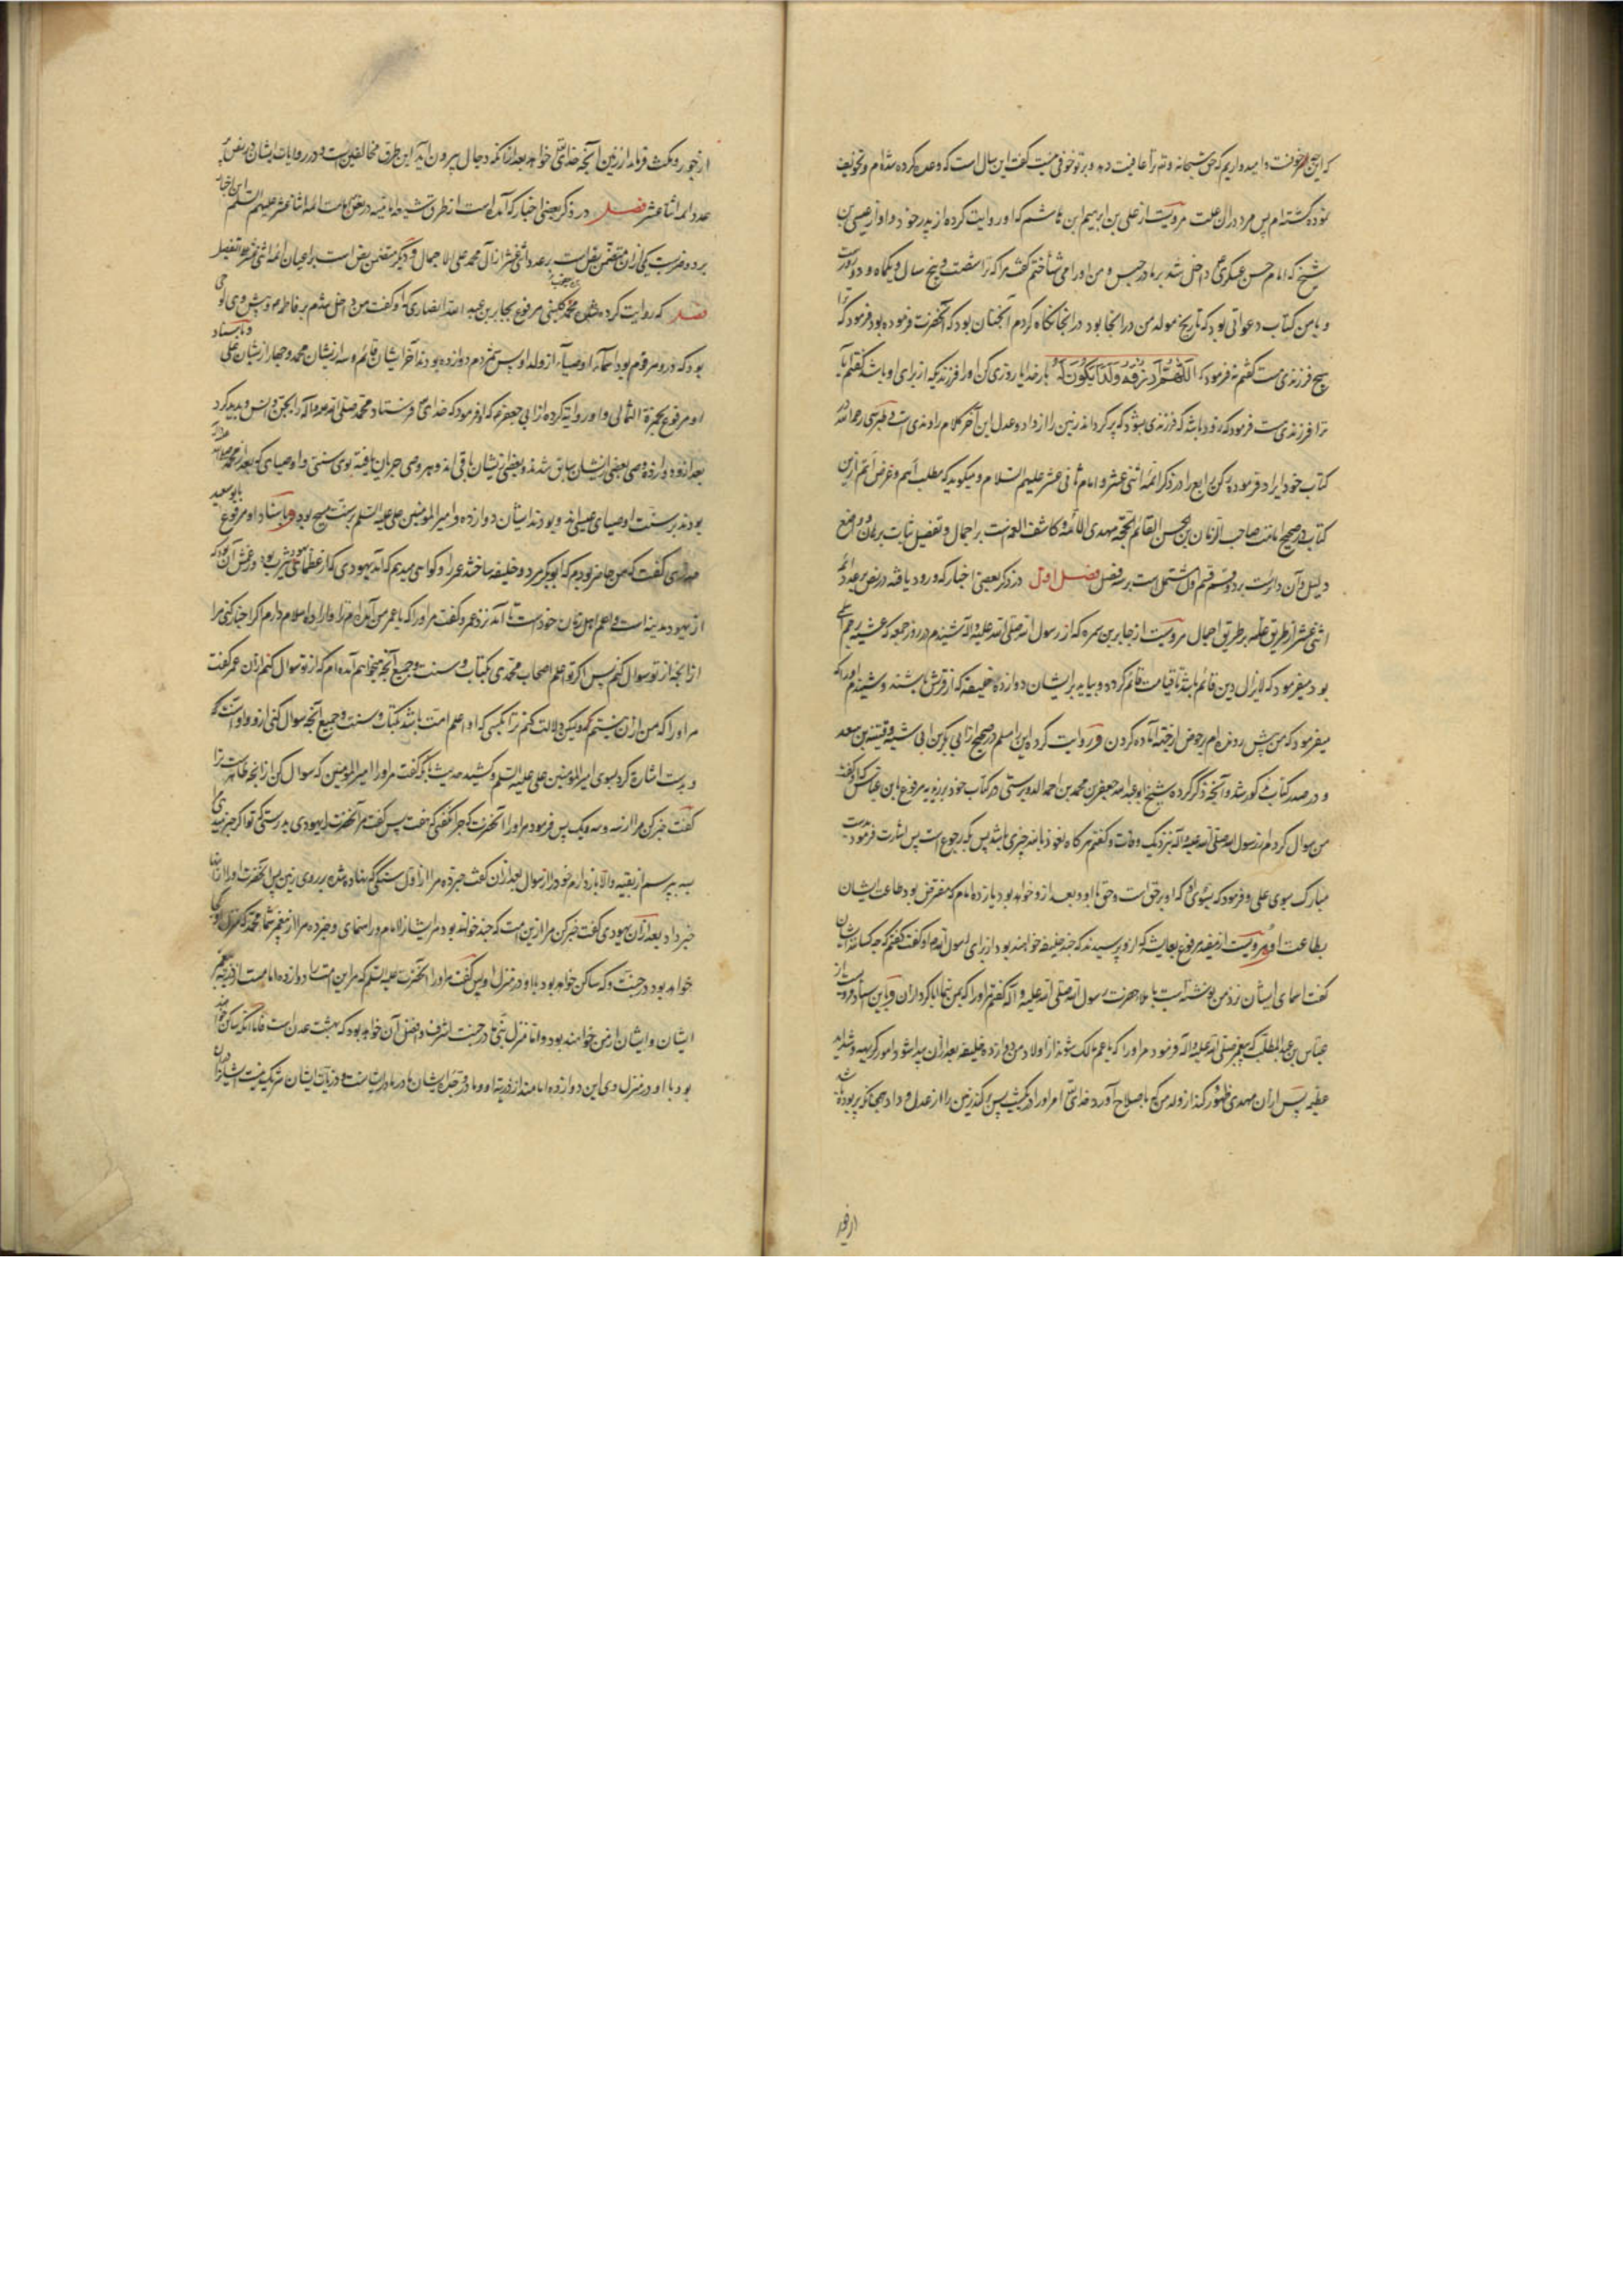 که این چه خوفست و امیدواریم که حق سبحانه و تع ترا عافیت دهد و بر تو خوفی نیست گفت این سال است که وعده کرده شده‌ام و تخویف
نموده گشته‌ام پس مرد در آن علت مرویست از علی بن ابرهیم ابن هاشم که او روایت کرده از پدر خود و او از عیسی بن
شیخ که امام حسن عسکری داخل شد بر ما در حبس و من او را می شناختم گفت مرا که ترا شصت و پنج سال و یکماه و دو روزست
و با من کتاب دعواتی بود که تاریخ مولد من در آنجا بود در آنجا نگاه کردم آنچنان بود که آنحضرت فرموده بود فرمود که ترا
هیچ فرزندی هست گفتم نه فرمود که اللهم ارزقه ولدا یکون له بار خدایا روزی کن او را فرزندی که از برای او باشد گفتم آیا
ترا فرزندی هست فرمود که زود باشد که فرزندی بشود که پر گرداند زمین را از داد و عدل این آخر کلام راوندی است و طبرسی رحمه الله در
کتاب خود ایراد فرموده رکن رابع را در ذکر ائمه اثنی عشر و امام ثانی عشر علیهم السلام و میگوید که مطلب اهم و غرض اتم ازین
کتاب تصحیح امامت صاحب الزمان بن الحسن القائم الحجة مهدی الامة و کاشف الغمه است بر اجمال و تفصیل ثبات برهان و وضع
دلیل و آن دائرست بر دو قسم قسم اول مشتمل است بر سه فصل فصل اول در ذکر بعضی اخبار که ورود یافته در نص بر عدد ائمه
اثنی عشر از طریق عامه بر طریق اجمال مرویست از جابر بن سمره که از رسول الله صلی الله علیه و اله شنیدم در روز جمعه که عشیه رجم اسلمی
بود میفرمود که لا یزال دین قائم باشد تا قیامت قائم گردد و بیاید بر ایشان دوازده خلیفه که از قریش باشند و شنیدم او را که
میفرمود که من پیش رونده‌ام بر حوض از جهته آماده کردن و روایت کرده این را مسلم در صحیح از ابی بکر بن ابی شیبه و قتیبه بن سعد
و در صدر کتاب مذکور شد و آنچه ذکر کرده شیخ ابو عبد الله جعفر بن محمد بن احمد الدوریستی در کتاب خود مرفوع بابن عباس که او گفت
من سوال کردم از رسول الله صلی الله علیه و اله نزدیک وفات و گفتم هر گاه نعوذ بالله چیزی باشد پس بکه رجوع است پس اشارت فرمود بدست
مبارک بسوی علی و فرمود که بسوی او که او بر حق است و حق با او و بعد از و خواهد بود یازده امام که مفترض بود طاعت ایشان
بطاعت او مرویست از مفید مرفوع بعایشه که از و پرسیدند که چند خلیفه خواهند بود از برای رسول الله او گفت گفتم که چه کسانند ایشان
گفت اسمای ایشان نزد من نوشته است باملا حضرت رسول الله صلی الله علیه و اله گفتم او را که بمن بنما ابا کرد از آن و باین اسناد مرویست از
عباس بن عبد المطلب که پیغمبر صلی الله علیه و اله فرمود مر او را که یا عم مالک شوند از اولاد من دوازده خلیفه بعد از آن پیدا شود امور کریهه و شداید
عظیمه پس از آن مهدی ظهور کند از ولد من که باصلاح آورد خدای تع امر او را در یک شب پس پر کند زمین را از عدل و داد همچنانکه پر بوده باشد
از جور
از جور و مکث فرماید در زمین آنچه خدای تع خواهد بعد از آنکه دجال بیرون آید این طرق مخالفین است و در روایات ایشان در نص بر
عدد ائمه اثنا عشر فصل در ذکر بعضی اخبار که آمده است از طرق شیعه امامیه در نص امامت ائمه اثنا عشر علیهم السلم این اخبار
بر دو ضرب است یکی از آن متضمن نص است بر عدد اثنی عشر از آل محمد علی الاجمال و دیگر متضمن نص است بر اعیان ائمه اثنی عشر علی التفصیل
فصل که روایت کرده محمد بن یعقوب کلینی مرفوع بجابر بن عبد الله انصاری که او گفت من داخل شدم بر فاطمه و پیش وی لوحی
بود که درو مرقوم بود اسماء اوصیاء از ولد او پس شمردم دوازده بودند آخر ایشان قائم و سه از یشان محمد و چهار از یشان علی و باسناد
او مرفوع بحمزة الثمالی و او روایة کرده از ابی جعفر که او فرمود که خدای تع فرستاد محمد صلی الله علیه و اله را بجن و انس و پدید کرد
بعد از و دوازده وصی بعضی از یشان سابق شدند و بعضی از یشان باقی‌اند و هر وصی جریان یافته بوی سنتی و اوصیای که بعد از محمد صلی الله علیه و اله
بودند بر سنت اوصیای عیسی‌اند و بودند ایشان دوازده و امیر المؤمنین علی علیه السلم بر سنت مسیح بود و باسناد او مرفوع بابو سعید
خدری گفت که من حاضر بودم که ابوبکر مرد و خلیفه ساخت عمر را و گواهی میدهم که آمد یهودی که از عظمای یهود یثرب بود و زعمش آن بود که
از یهود مدینه است و اعلم اهل زمان خودست تا آمد نزد عمر و گفت مر او را که یا عمر من آمده‌ام ترا و اراده اسلام دارم اگر اخبار کنی مرا
از آنچه از تو سوال کنم پس اگر تو اعلم اصحاب محمدی بکتاب و سنت و جمیع آنچه میخواهم آمده‌ام که از تو سوال کنم از آن عمر گفت
مر او را که من از آن نیستم که میگویی لیکن دلالت کنم ترا بکسی که او اعلم امت باشد بکتاب و سنت و جمیع آنچه سوال کنی از و و او اینست که
و بدست اشاره کرد بسوی امیر المؤمنین علی علیه السلم و کشید حدیث تا آنکه گفت مر او را امیر المؤمنین که سوال کن از آنچه ظاهر است ترا
گفت خبر کن مرا از سه و سه و یک پس فرمود مر او را آنحضرت که چرا نگفتی که هفت پس گفت مر آنحضرت را یهودی بدرستی که تو اگر خبر میدی
بسه بپرسم از بقیه و الا باز دارم خود را از سوال بعد از آن گفت خبر ده مرا از اول سنگی که نهاده شده بر روی زمین پس آنحضرت او را از آنها
خبر داد بعد از آن یهودی گفت خبر کن مرا ازین امت که چند خواهد بود مر ایشان را امام و از اسمای و خبر ده مرا از پیغمبر شما محمد که منزل او کجا
خواهد بود در جنت و که ساکن خواهد بود با او در منزل او پس گفت مر او را آنحضرت علیه السلم که مر این امت را دوازده امامست از ذریه پیغمبر
ایشان و ایشان از من خواهند بود و اما منزل نبی ما در جنت اشرف و افضل آن خواهد بود که بهشت عدن است و اما آنکه ساکن خواهد
بود با او در منزل وی این دوازده امامند از ذریه او و مادر و جده ایشان مادر مادر ایشانست و ذریات ایشان شریک نیست ایشان را